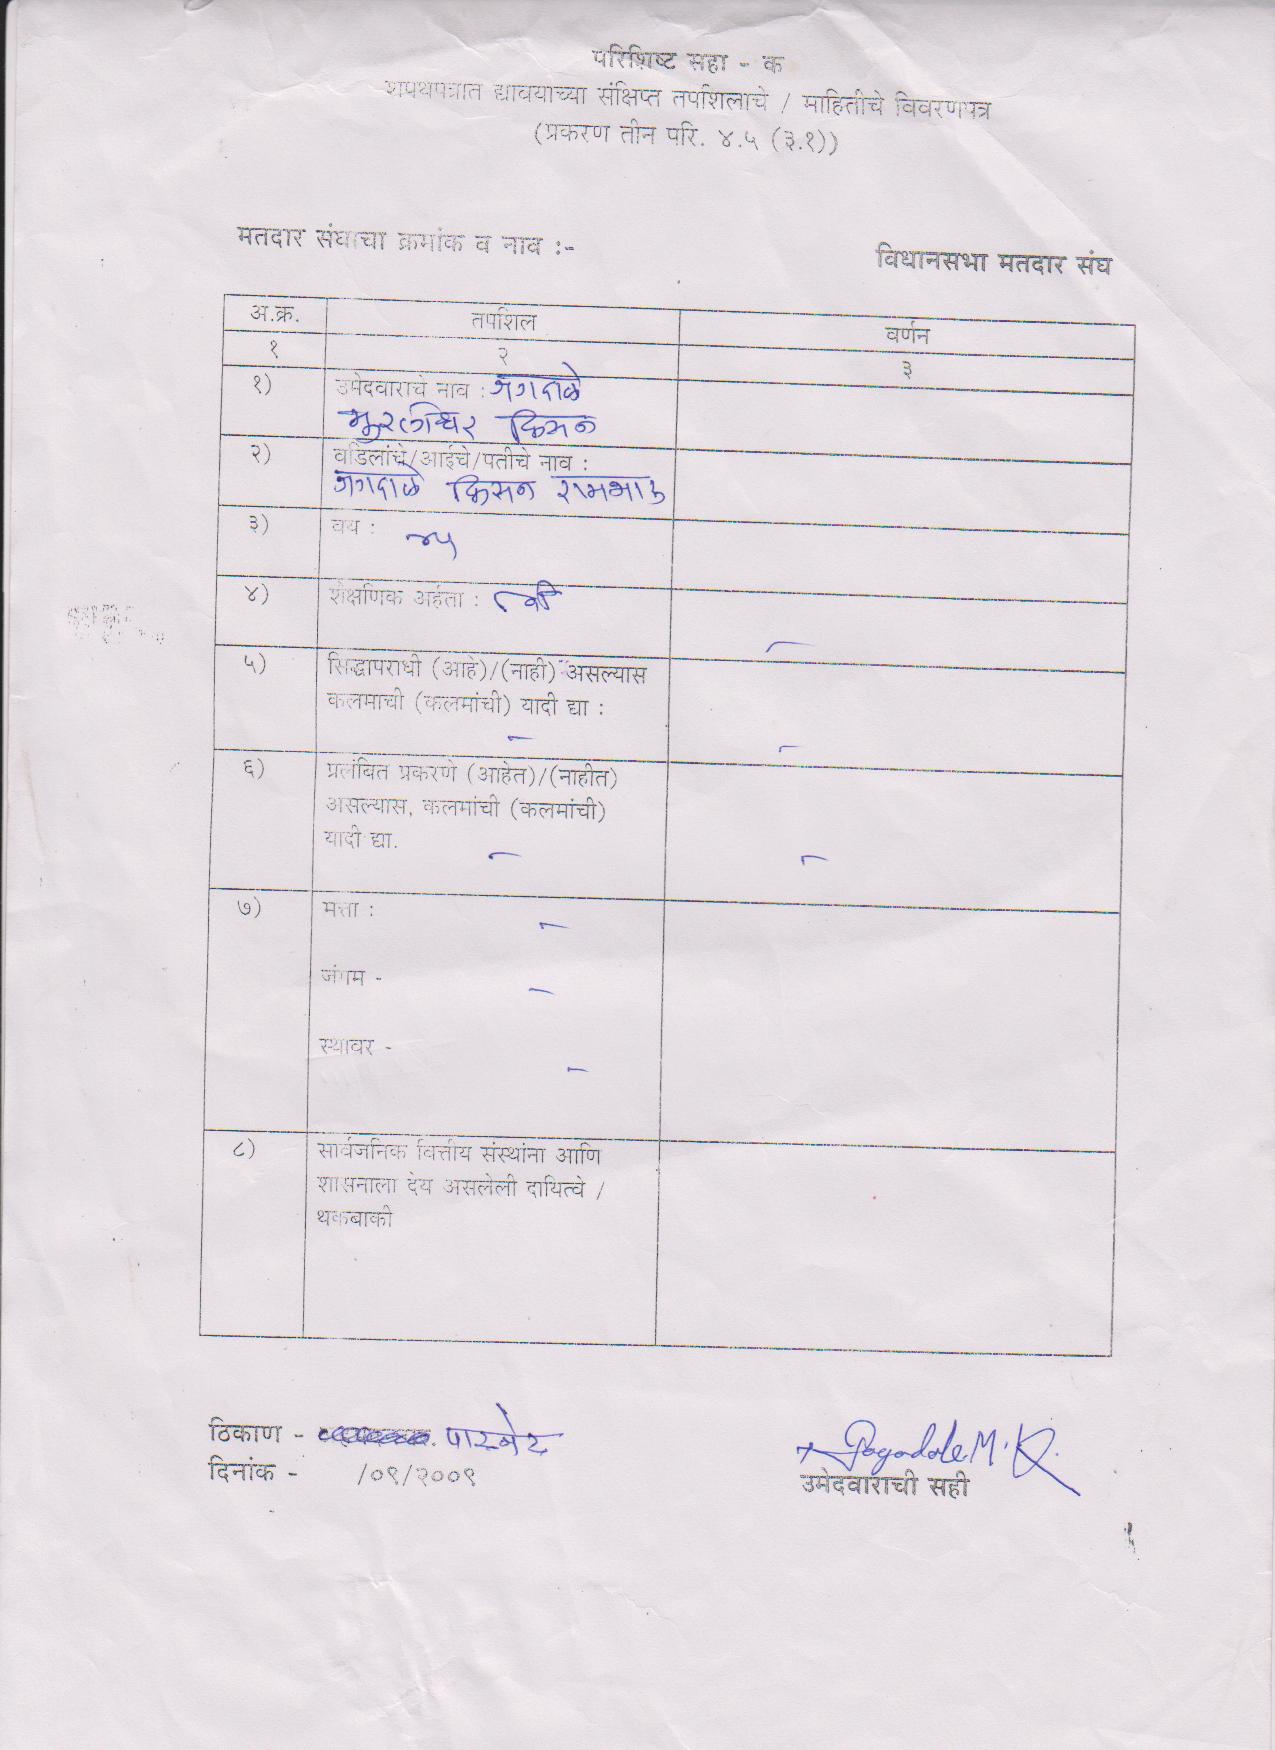 परिशिष्ट सहा - क
शपथपत्रात द्यावयाच्या संक्षिप्त तपशिलाचे / माहितीचे विवरणपत्र
(प्रकरण तीन परि. ४.५ (३.१))
मतदार संघाचा क्रमांक व नाव :- विधानसभा मतदार संघ
अ.क्र. तपशिल वर्णन
१ २ ३
१) उमेदवाराचे नाव : जगदाळे
मुरलीधर किसन
२) वडिलांचे/आईचे/पतीचे नाव :
जगदाळे किसन रामभाऊ
३) वय : ४५
४) शैक्षणिक अर्हता :
५) सिद्धापराधी (आहे)/(नाही) असल्यास
कलमाची (कलमांची) यादी द्या :
६) प्रलंबित प्रकरणे (आहेत)/(नाहीत)
असल्यास, कलमांची (कलमांची)
यादी द्या.
७) मत्ता :
जंगम -
स्थावर -
८) सार्वजनिक वित्तीय संस्थांना आणि
शासनाला देय असलेली दायित्वे /
थकबाकी
ठिकाण - पारनेर
दिनांक - /०९/२००९
Jagadale M.K.
उमेदवाराची सही